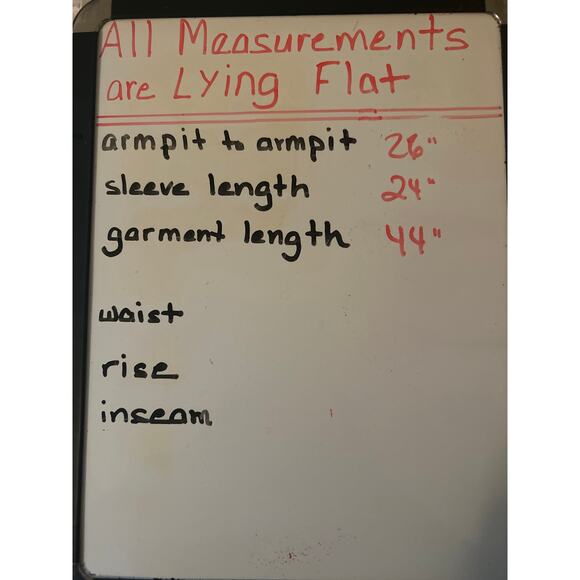 All Measurements
are Lying Flat
armpit to armpit 26"
sleeve length 24"
garment length 44"
waist
rise
inseam